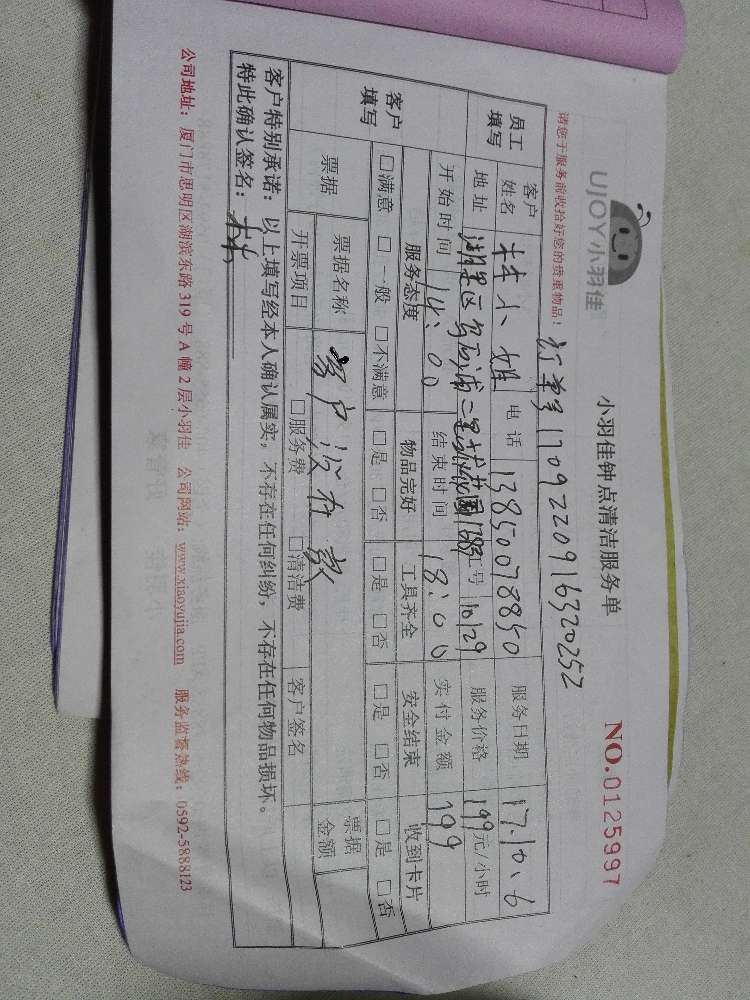 UJOY小羽佳
小羽佳钟点清洁服务单
NO.0125997
请您于服务前收拾好您的贵重物品！
订单号1709220916320252
员工填写
客户姓名 林小姐 电话 13850078850 服务日期 17.10.6
地址 湖里区 工号 1029 服务价格 199元/小时
开始时间 14:00 结束时间 18:00 实付金额 199
客户填写
服务态度 物品完好 工具齐全 安全结束 收到卡片
□满意 □一般 □不满意 □是 □否 □是 □否 □是 □否 □是 □否
票据 票据名称 客户没在家 票据金额
开票项目 □服务费 □清洁费 客户签名
客户特别承诺：以上填写经本人确认属实，不存在任何纠纷，不存在任何物品损坏。
特此确认签名：林
公司地址：厦门市思明区湖滨东路 319 号 A 幢 2 层小羽佳 公司网站：www.xiaoyujia.com 服务监督热线：0592-5888123